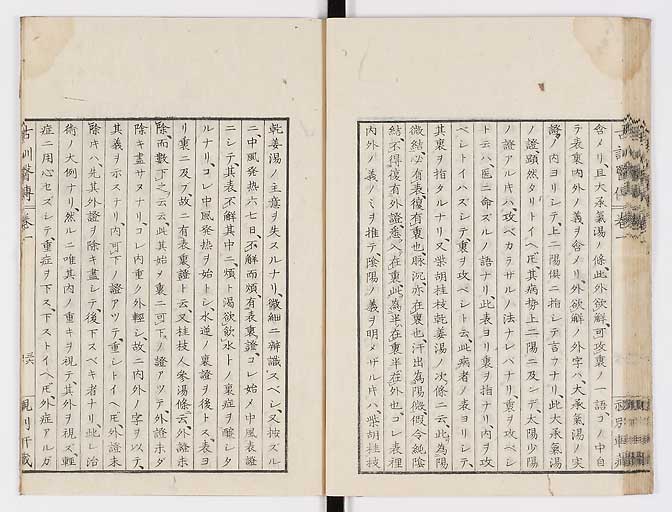 含メリ、且大承氣湯ノ條、此外欲解、可攻裏ノ一語、コノ中自
ラ表裏内外ノ義ヲ含メリ、外欲解ノ外字ハ、大承氣湯ノ実
證ノ内ヨリシテ、上二陽俱ニ指シテ言フナリ、此大承氣湯
ノ證顕然タリトイヘ𪜈、其病勢上二陽ニ及シテ、太陽少陽
ノ證アルキハ、攻ベカラザルノ法ナレバナリ、裏ヲ攻ベシ
ト云ハ、医ニ命ズルノ語ナリ、此表ヨリ裏ヲ指ナリ、内ヲ攻
ベシトイハズシテ、裏ヲ攻ベシト云、此病者ノ表ヨリシテ、
其裏ヲ指タルナリ、又柴胡桂枝乾姜湯ノ次條ニ云、此為陽
微結、必有表、復有裏也、脉沉亦在裏也、汗出為陽微、假令純陰
結、不得復有外證、悉入在裏、此為半在裏半在外也、コレ表裡
内外ノ義ノミヲ推テ、陰陽ノ義ヲ明メザルキハ、柴胡桂枝
乾姜湯ノ主意ヲ失スルナリ、微細ニ辨識スベシ、又按ズル
ニ、中風発热六七日、不解而煩、有表裏證、コレ始ノ中風表證
ニシテ、其表不解、其中ニ煩ト渇欲飲水トノ裏症ヲ醸シタ
ルナリ、コレ中風発热ヲ始トシ、水逆ノ裏證ヲ後トス、表ヨ
リ裏ニ及ブ、故ニ有表裏證ト云、又桂枝人参湯條云、外證未
除、而數下之云云、此其始メ裏ニ可下ノ證アツテ、外證未ダ
除キ盡サヌナリ、コレ内重ク外輕シ、故ニ内外ノ字ヲ以テ、
其義ヲ示スナリ、内可下ノ證アツテ、重シトイヘ𪜈、外證未
除キハ、先其外證ヲ除キ盡シテ、後下スベキ者ナリ、此レ治
術ノ大例ナリ、然ルニ唯其内ノ重キヲ視テ、其外ヲ視ズ、輕
症ニ用心セズシテ、重症ヲ下ス、下ストイヘ𪜈、外症アルガ
古訓醫傳 卷一